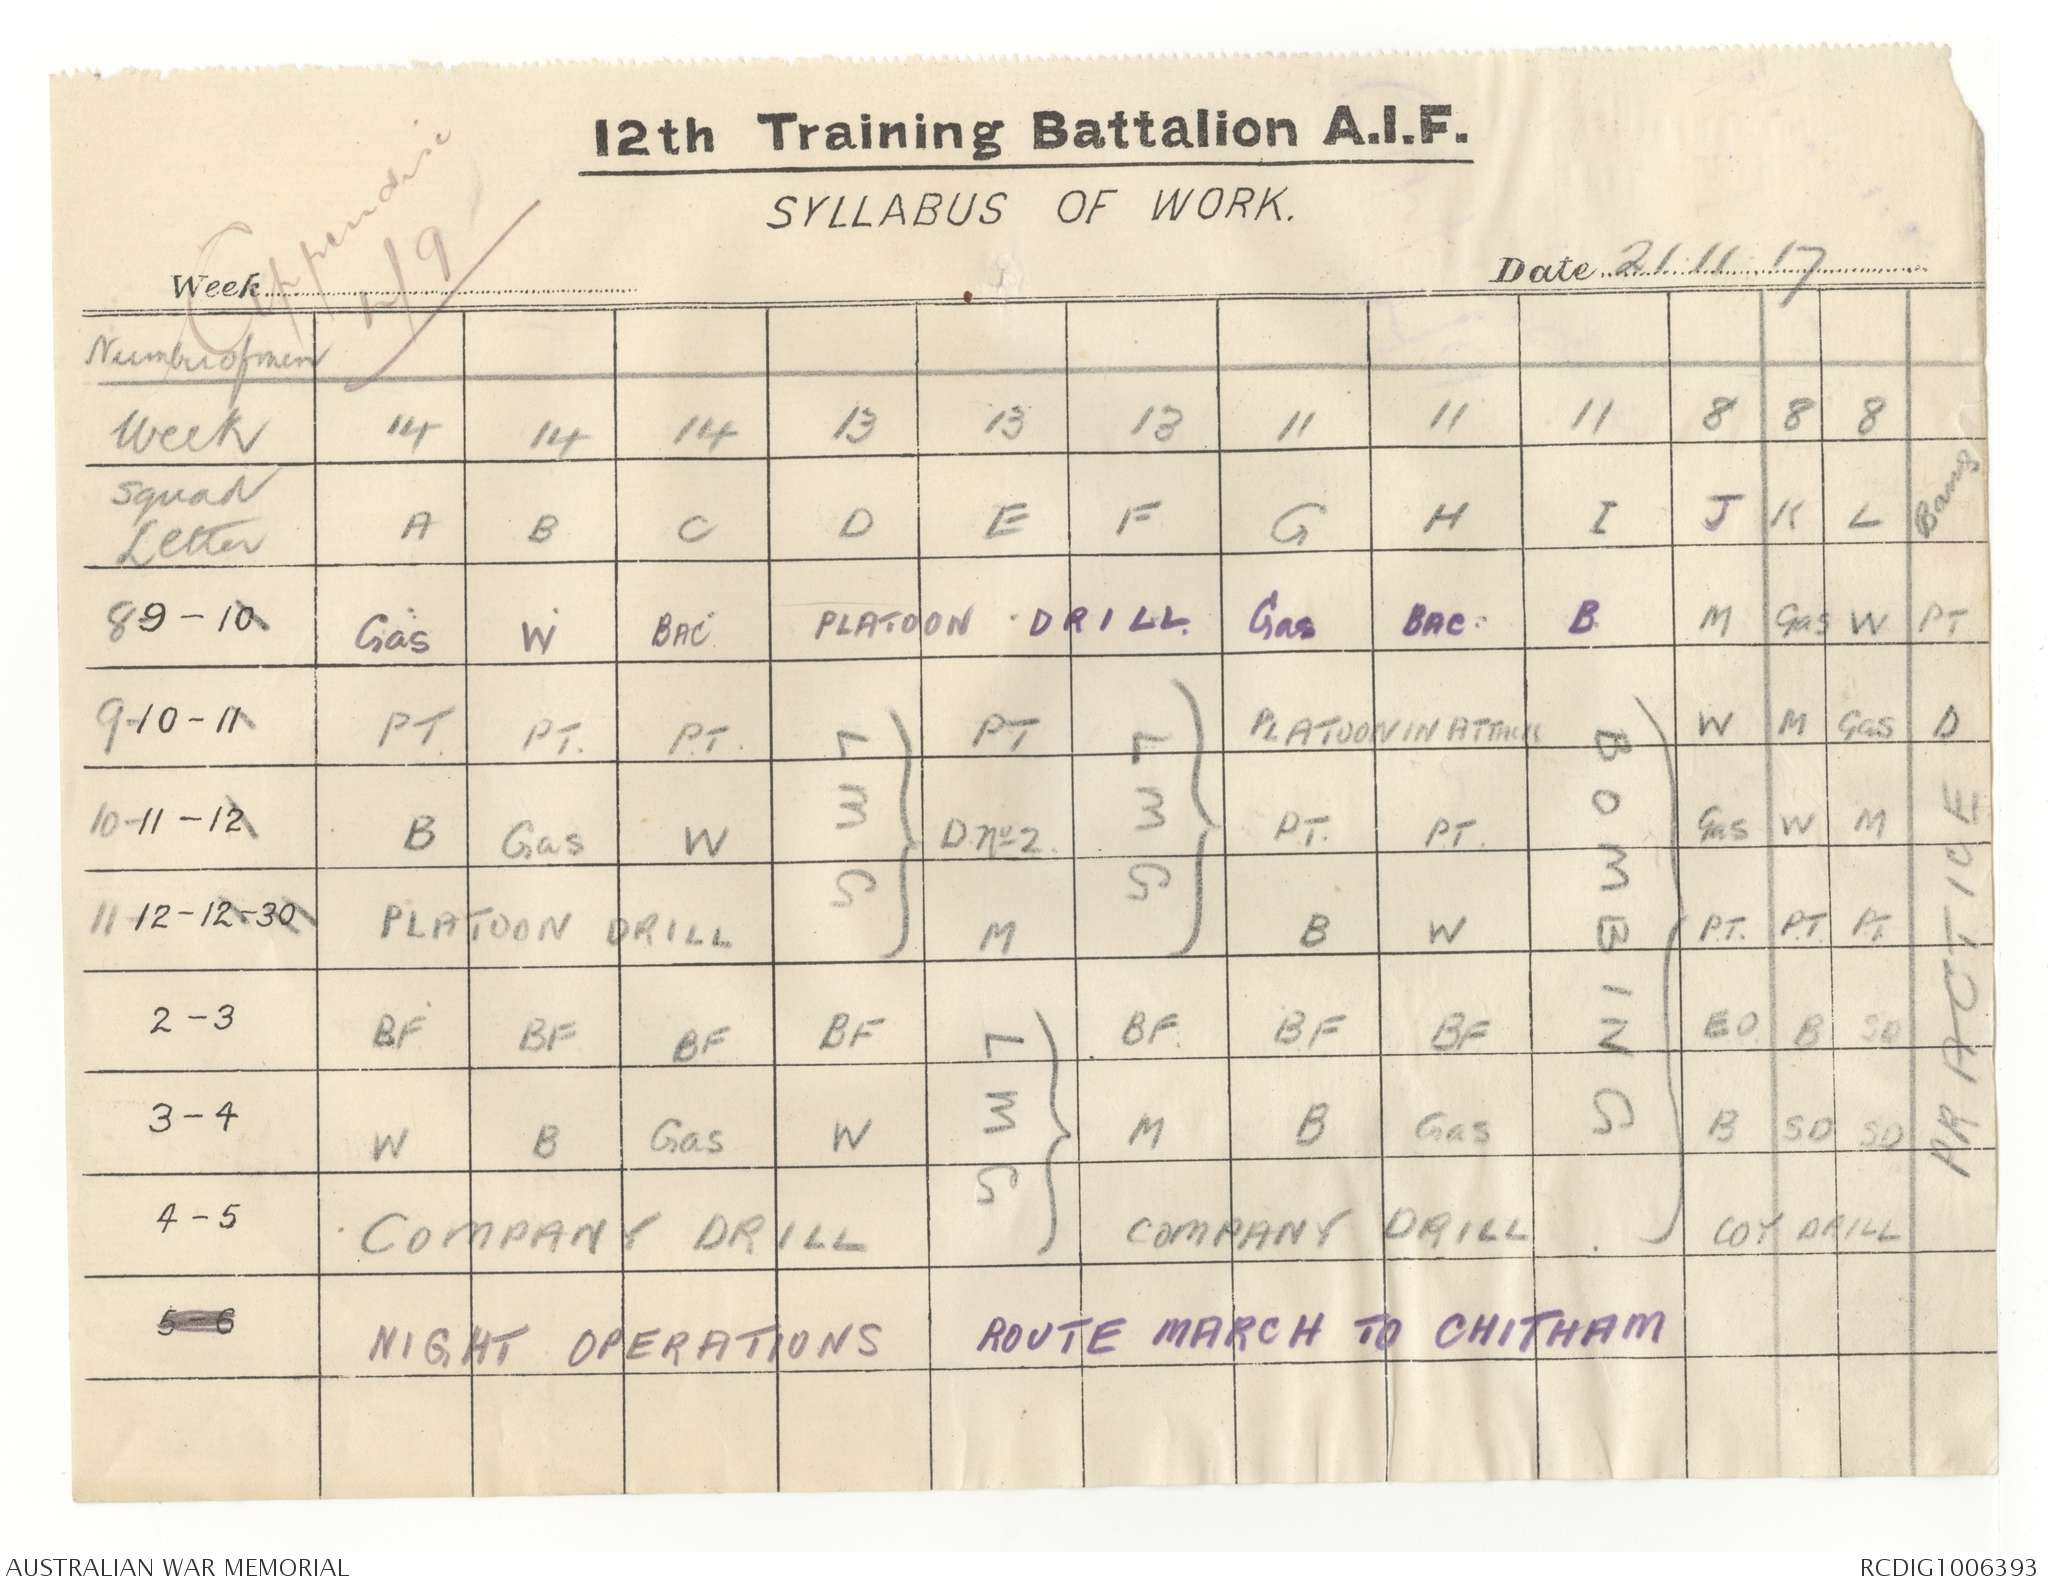 12th Training Battalion A.I.F.
SYLLABUS OF WORK.
Appendix
9
Week
Date 21.11.17
Number of men
Week 14 14 14 13 13 13 11 11 11 8 8 8
Squad Letter A B C D E F G H I J K L
8 9 - 10 Gas W BAC PLATOON DRILL. Gas BAC: B. M Gas W PT
9-10-11 PT. P.T. P.T. L M G PT L M G PLATOON IN ATTACK BOMBING W M Gas D
10-11-12 B Gas W D. No 2. PT. PT. Gas W M PRACTICE
11-12-12-30 PLATOON DRILL M B W P.T. P.T. PT.
2-3 BF BF BF BF L M G BF. BF BF B SD
3-4 W B Gas W M B Gas B SD SD
4-5 COMPANY DRILL COMPANY DRILL COY DRILL
5-6 NIGHT OPERATIONS ROUTE MARCH TO CHITHAM
AUSTRALIAN WAR MEMORIAL
RCDIG1006393